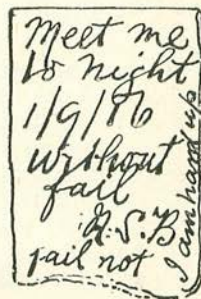 Meet me
to night
1/9/86
without
fail
G. S. B.
fail not
I am hard up